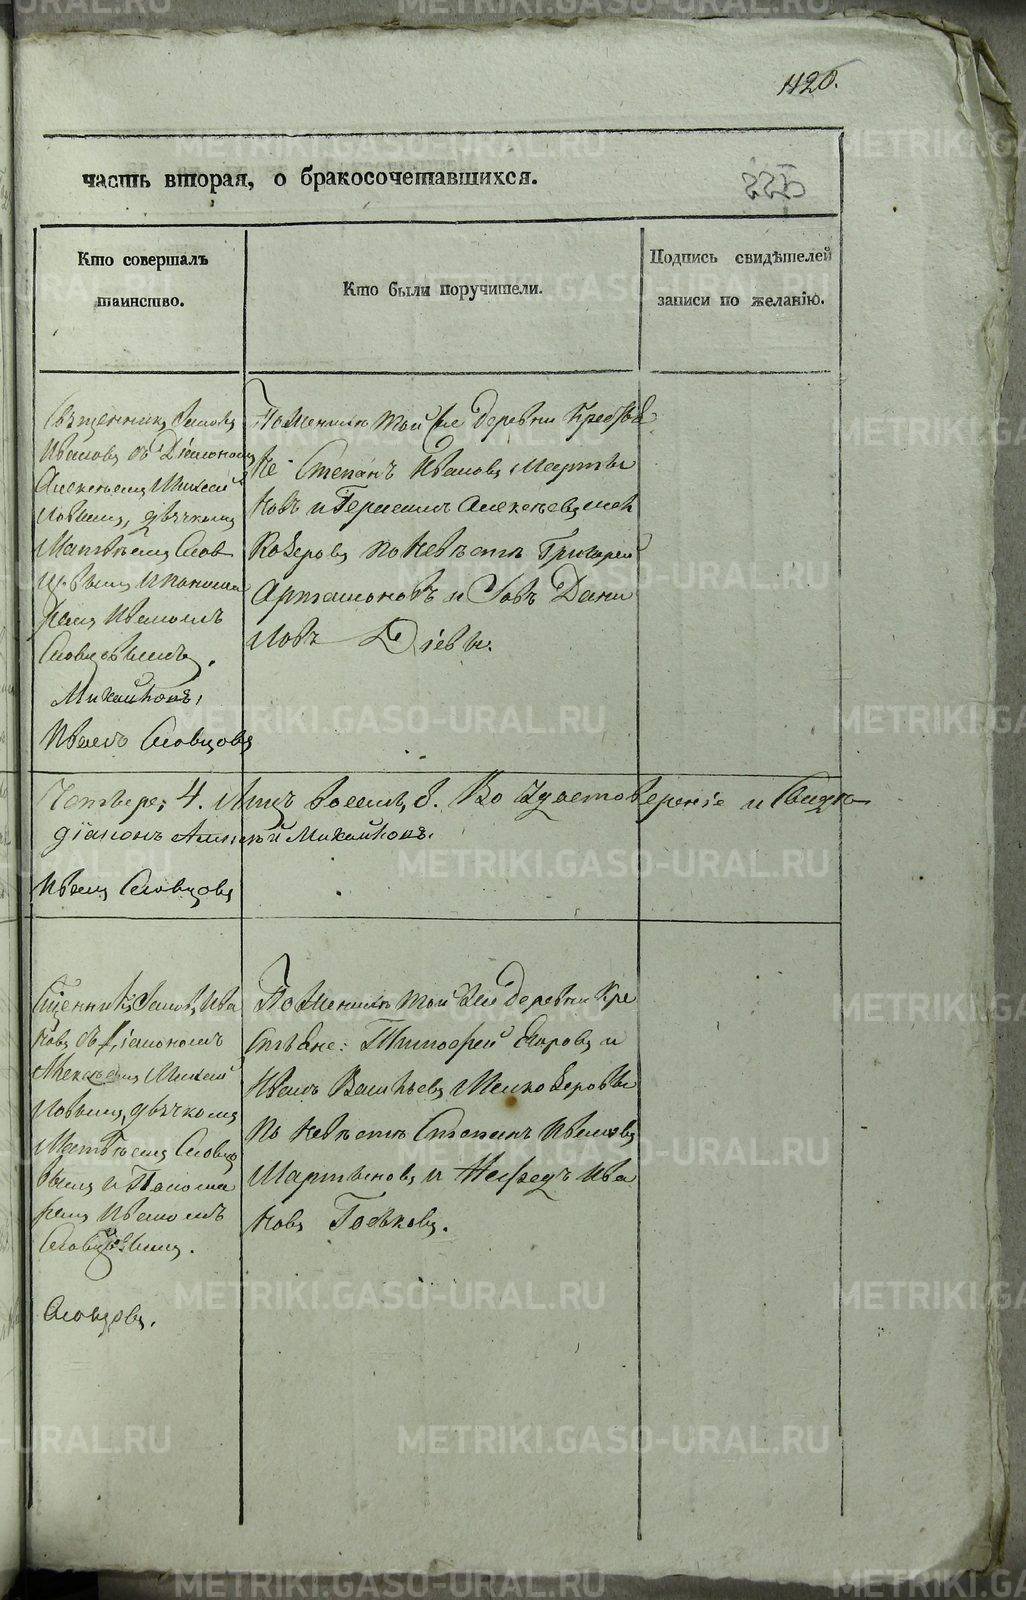 1120.
часть вторая, о бракосочетавшихся.
Кто совершалъ
таинство.
Кто были поручители.
Подпись свидѣтелей
записи по желанію.
Священникъ
Ивановъ съ Діакономъ
Алексѣемъ Михай
ловымъ, дьячкомъ
Матвѣемъ Слов
цовымъ и понома
ремъ Иваномъ
Словцовымъ.
Михайловъ,
Иванъ Словцовъ
По женихѣ той же деревни
Степанъ Ивановъ Марты
новъ и Герасимъ Алексѣевъ
по невѣстѣ Григорей
Артамоновъ и Савъ Дани
ловъ Діевы.
Четыре, 4. лицъ восемь, 8. Во удостовѣреніе и
діаконъ Алексѣй Михайловъ.
Иванъ Словцовъ
Ива
новъ съ Діакономъ
Алексѣемъ Михай
ловымъ, дьячкомъ
Матвѣемъ Словцо
вымъ и Понома
ремъ Иваномъ
Словцовымъ.
Словцовъ.
По женихѣ той же деревни Кре
стьяне: Тимофей Егоровъ и
Иванъ Васильевъ
по невѣстѣ Степанъ Ивановъ
Мартыновъ и Нефедъ Ива
новъ
METRIKI.GASO-URAL.RU